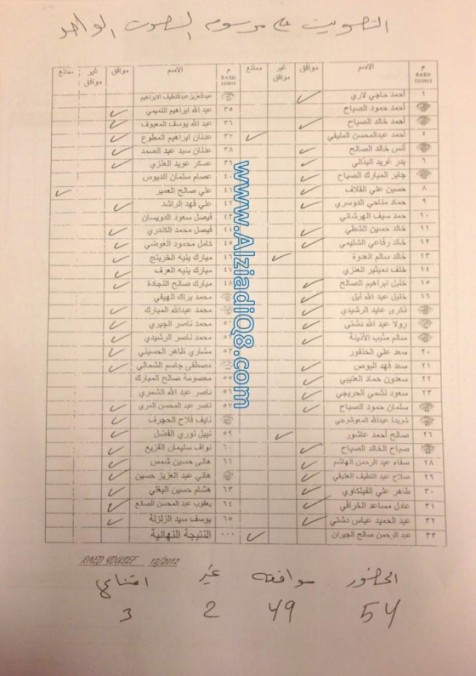 التصويت على مرسوم الصوت الواحد
م RAED YOUSEF الاسم موافق غير موافق ممتنع
١ أحمد حاجي لاري
أحمد حمود الصباح
أحمد خالد الصباح
٤ أحمد عبدالمحسن المليفي
أنس خالد الصالح
٦ بدر غريد البذالي
جابر المبارك الصباح
٨ حسين علي القلاف
٩ حماد مناحي الدوسري
١٠ حمد سيف الهرشاني
١١ خالد حسين الشطي
١٢ خالد رفاعي الشليمي
١٣ خالد سالم العدوة
١٤ خلف دميثير العنزي
١٥ خليل ابراهيم الصالح
١٦ خليل عبد الله أبل
ذكرى عايد الرشيدي
رولا عبد الله دشتي
سالم مثيب الأذينة
٢٠ سعد علي الخنفور
٢١ سعد فهد البوص
٢٢ سعدون حماد العتيبي
٢٣ سعود نشمي الحريجي
سلمان حمود الصباح
شريدة عبدالله المعوشرجي
٢٦ صالح أحمد عاشور
صباح الخالد الصباح
٢٨ صفاء عبد الرحمن الهاشم
٢٩ صلاح عبد اللطيف العتيقي
٣٠ طاهر علي الفيلكاوي
٣١ عادل مساعد الخرافي
٣٢ عبد الحميد عباس دشتي
٣٣ عبد الرحمن صالح الجيران
م RAED YOUSEF الاسم موافق غير موافق ممتنع
عبدالعزيز عبداللطيف الابراهيم
٣٥ عبد الله ابراهيم التميمي
٣٦ عبد الله يوسف المعيوف
٣٧ عدنان ابراهيم المطوع
٣٨ عدنان سيد عبد الصمد
٣٩ عسكر عويد العنزي
عصام سلمان الدبوس
علي صالح العمير
علي فهد الراشد
فيصل سعود الدويسان
فيصل محمد الكندري
كامل محمود العوضي
مبارك بنيه الخرينج
مبارك بنيه العرف
مبارك صالح النجادة
محمد براك الهيفي
محمد عبدالله المبارك
محمد ناصر الجبري
محمد ناصر الرشيدي
مشاري ظاهر الحسيني
مصطفى جاسم الشمالي
معصومة صالح المبارك
ناصر عبد الله الشمري
ناصر عبد المحسن المري
نايف فلاح الحجرف
٥٩ نبيل نوري الفضل
نواف سليمان الفزيع
هاني حسين شمس
هاني عبد العزيز حسين
٦٣ هشام حسين البغلي
٦٤ يعقوب عبد المحسن الصانع
٦٥ يوسف سيد الزلزلة
٠٠٠ النتيجة النهائية
www.AlziadiQ8.com
RAED YOUSEF 12/2012
الحضور موافقه غير امتناع
54 49 2 3